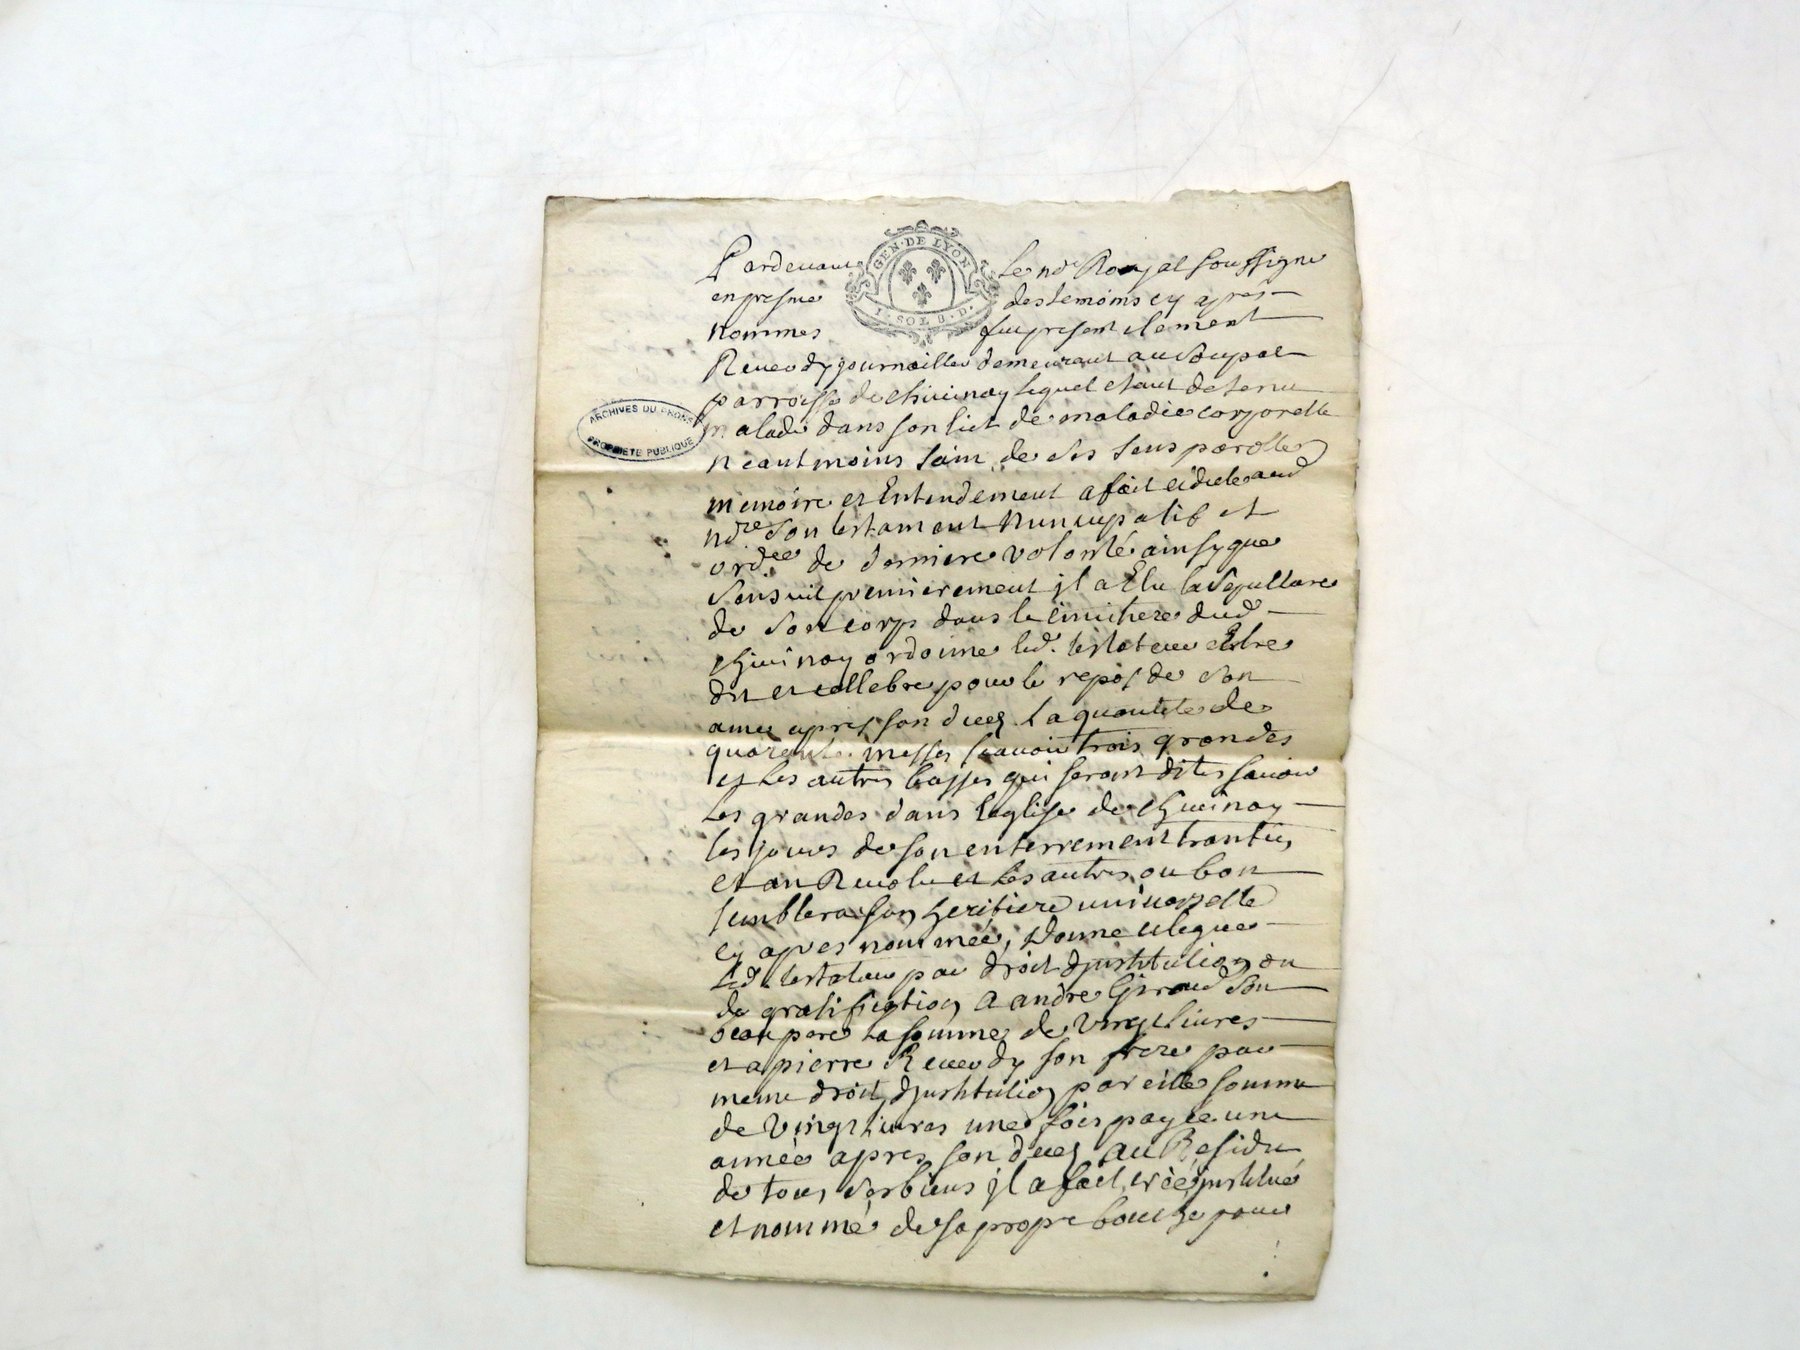 GEN. DE LYON
1. SOL 8. D.
Pardevant le nore Royal soussigné
en presence des temoins cy apres
nommes fut present clement
Reverdy journaillier demeurant au
parroisse de chivinay lequel etant detenu
malade dans son lict de maladie corporelle
neantmoins sain de ses sens parolle
memoire et Entendement a fait et dicté aud
nore son testament nuncupatif et
ordce de derniere volonté ainsy que
sensuit premierement il a Elu la sepulture
de son corps dans le cimithere dud
chivinay ordonne led. testateur Estre
dit et cellebre pour le repos de son
ame apres son deces la quantite de
quarante messes scavoir trois grandes
et les autres basses qui seront dites scavoir
les grandes dans leglise de chivinay
les jours de son enterrement trantin,
et an Revolu et les autres ou bon
semblera a son heritiere universelle
cy apres nommée, Donne et legue
led. testateur par droit djnstitution ou
de gratification a andre Giraud son
beau pere la somme de vingt livres
et a pierre Reverdy son frere par
meme droit djnstitution pareille somme
de vingt livres une fois payée une
année apres son deces, au Residu
de tous ses biens jl a fait, créé, jnstitué
et nommé de sa propre bouche pour
ARCHIVES DU RHONE
PROPRIETE PUBLIQUE